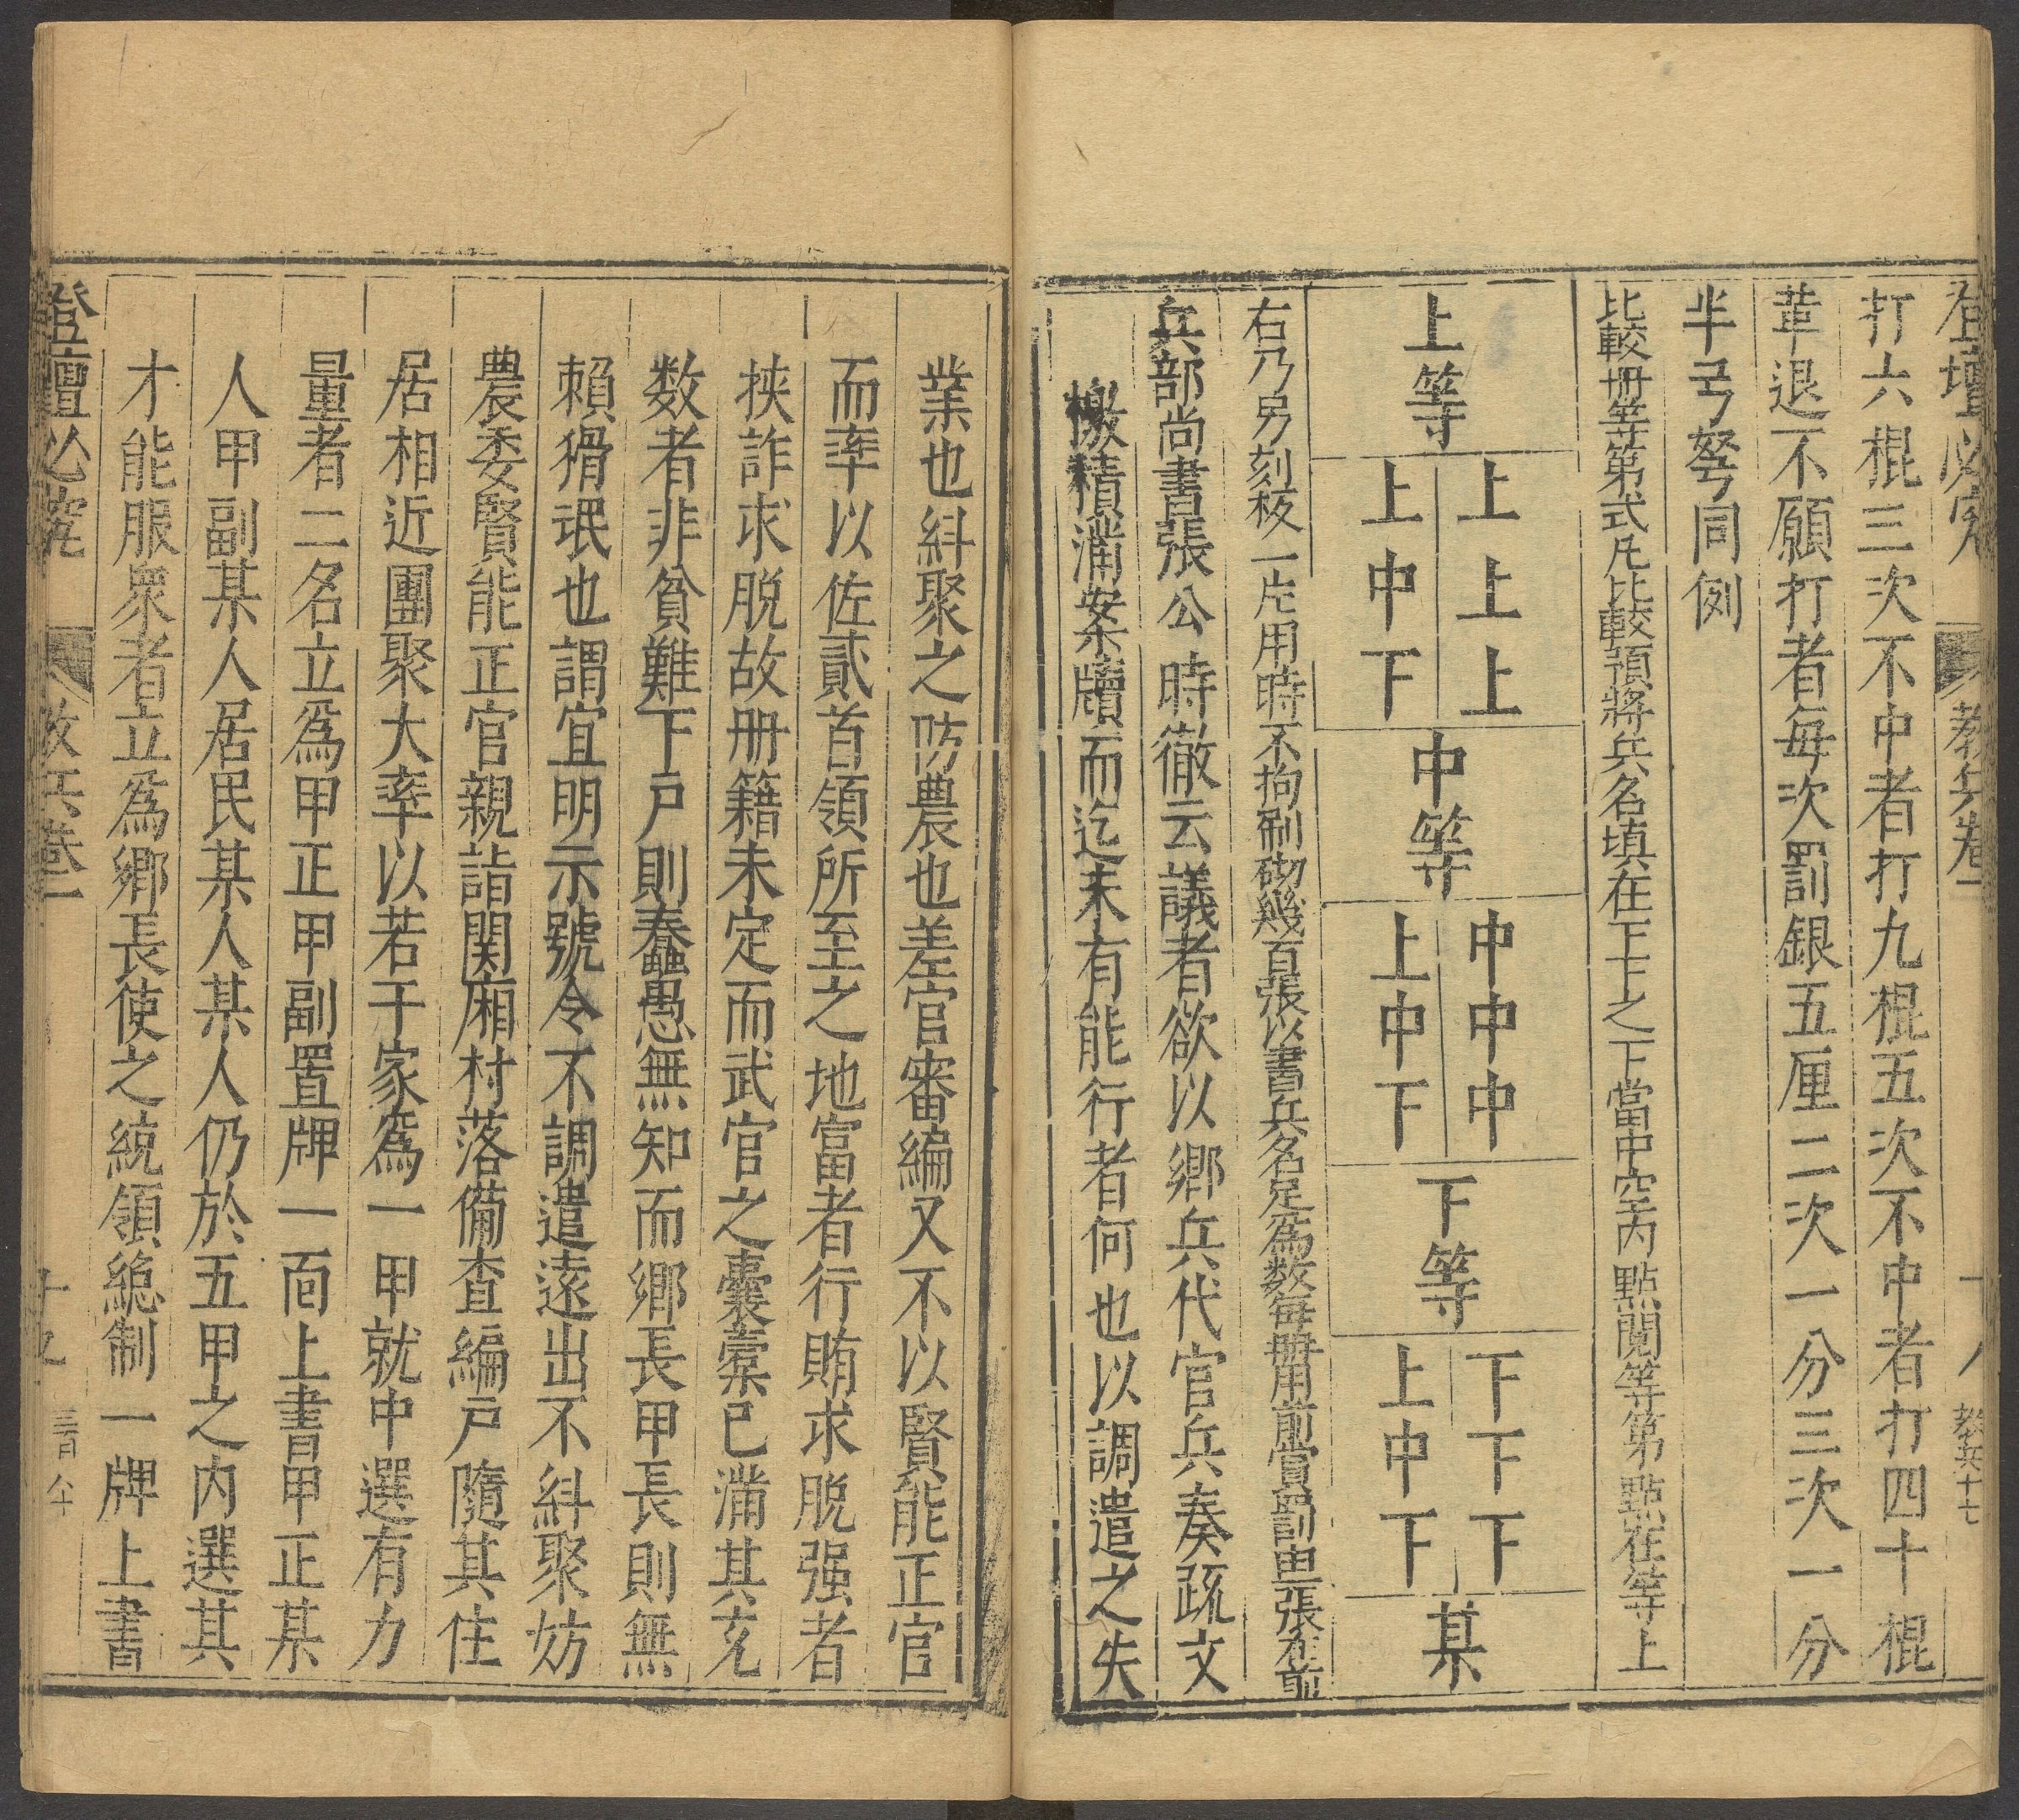 登壇必究 教兵卷一 十八 教兵十七
打六棍三次不中者打九棍五次不中者打四十棍
革退不願打者每次罰銀五厘二次一分三次一分
半弓弩同例
比較冊等第式凡比較預將兵名填在下下之下當中空内點閱等第點在等上
上等
上上上
上中下
中等
中中中
上中下
下等
下下下
上中下
某
右乃另刻板一片用時不拘刷砌幾百張以書兵名足爲数每冊用前賞罰由張在前
兵部尚書張公時徹云議者欲以鄉兵代官兵奏疏文
檄積滿案牘而迄未有能行者何也以調遣之失
業也糾聚之妨農也差官審編又不以賢能正官
而率以佐貳首領所至之地富者行賄求脱强者
挟詐求脱故册籍未定而武官之囊槖已滿其充
数者非貧難下户則蠢愚無知而鄉長甲長則無
賴猾氓也謂宜明示號令不調遣遠出不糾聚妨
農委賢能正官親詣関廂村落備査編戸隨其住
居相近團聚大率以若干家爲一甲就中選有力
量者二名立爲甲正甲副置牌一面上書甲正某
人甲副某人居民某人某人仍於五甲之内選其
才能服衆者立爲鄉長使之統領總制一牌上書
登壇必究 教兵卷一 三百八十